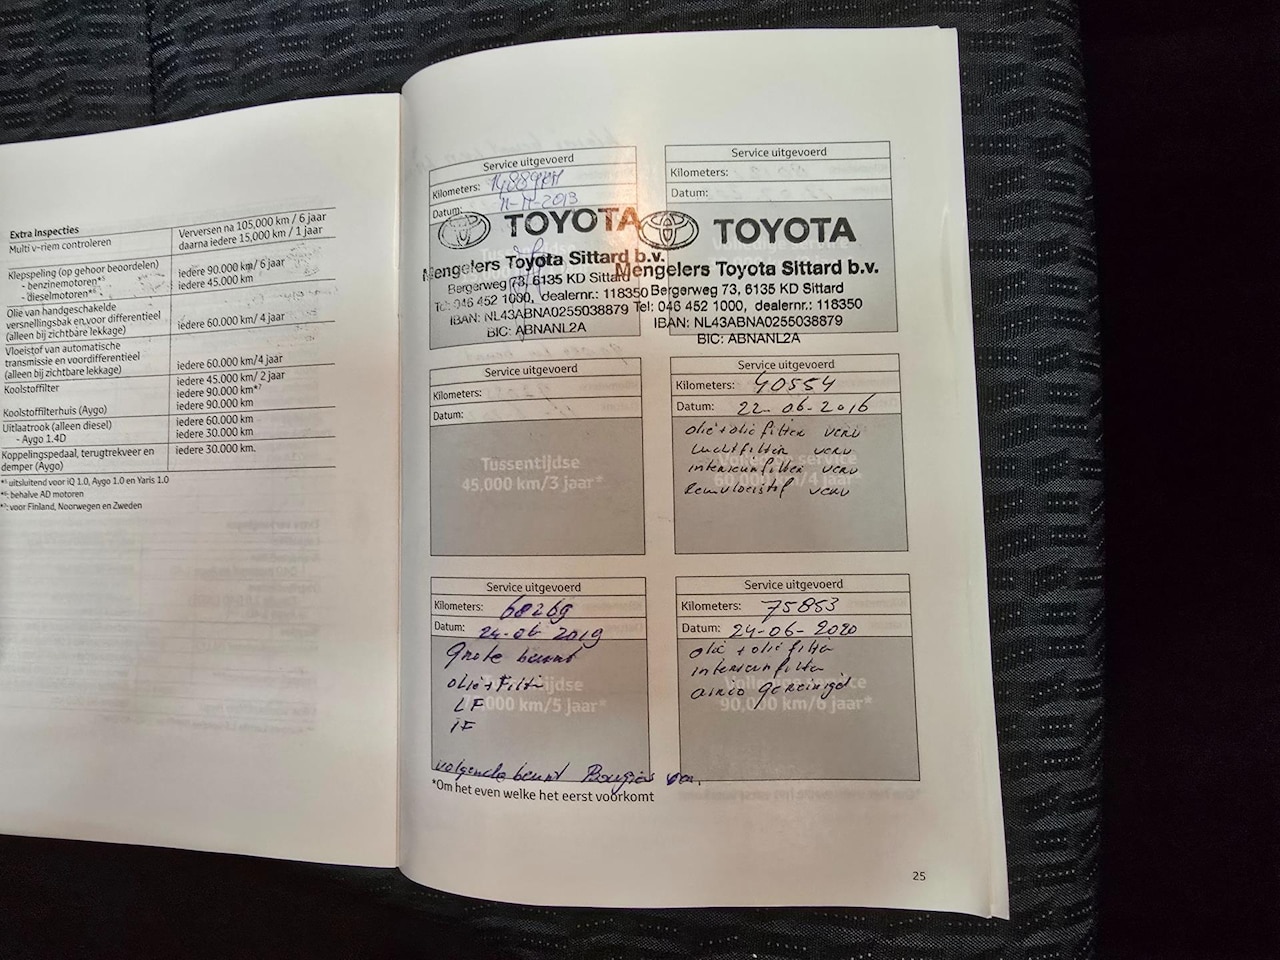 Extra Inspecties
Multi v-riem controleren
Verversen na 105,000 km / 6 jaar
daarna iedere 15,000 km / 1 jaar
Klepspeling (op gehoor beoordelen)
- benzinemotoren*5
- dieselmotoren*6
iedere 90.000 km/ 6 jaar
iedere 45.000 km
Olie van handgeschakelde
versnellingsbak en voor differentieel
(alleen bij zichtbare lekkage)
iedere 60.000 km/ 4 jaar
Vloeistof van automatische
transmissie en voordifferentieel
(alleen bij zichtbare lekkage)
iedere 60.000 km/4 jaar
Koolstoffilter
iedere 45.000 km/ 2 jaar
iedere 90.000 km*7
Koolstoffilterhuis (Aygo)
iedere 90.000 km
Uitlaatrook (alleen diesel)
- Aygo 1.4D
iedere 60.000 km
iedere 30.000 km
Koppelingspedaal, terugtrekveer en
demper (Aygo)
iedere 30.000 km.
*5 uitsluitend voor iQ 1.0, Aygo 1.0 en Yaris 1.0
*6: behalve AD motoren
*7: voor Finland, Noorwegen en Zweden
Service uitgevoerd
Kilometers:
Datum: 11-11-2013
TOYOTA
Mengelers Toyota Sittard b.v.
Bergerweg 73, 6135 KD Sittard
Tel: 046 452 1000, dealernr.: 118350
IBAN: NL43ABNA0255038879
BIC: ABNANL2A
Service uitgevoerd
Kilometers:
Datum:
TOYOTA
Mengelers Toyota Sittard b.v.
Bergerweg 73, 6135 KD Sittard
Tel: 046 452 1000, dealernr.: 118350
IBAN: NL43ABNA0255038879
BIC: ABNANL2A
Service uitgevoerd
Kilometers:
Datum:
Tussentijdse
45,000 km/3 jaar*
Service uitgevoerd
Kilometers: 40554
Datum: 22-06-2016
olie+olie filter verv
luchtfilter verv
interieurfilter verv
Remvloeistof verv
Volledige service
60,000 km/4 jaar*
Service uitgevoerd
Kilometers: 68269
Datum: 24-06-2019
Grote beurt
olie+Filter
LF
IF
km/5 jaar*
volgende beurt Bougies
Service uitgevoerd
Kilometers: 75853
Datum: 24-06-2020
olie + olie filter
interieurfilter
airco gereinigd
Volledige service
90,000 km/6 jaar*
*Om het even welke het eerst voorkomt
25